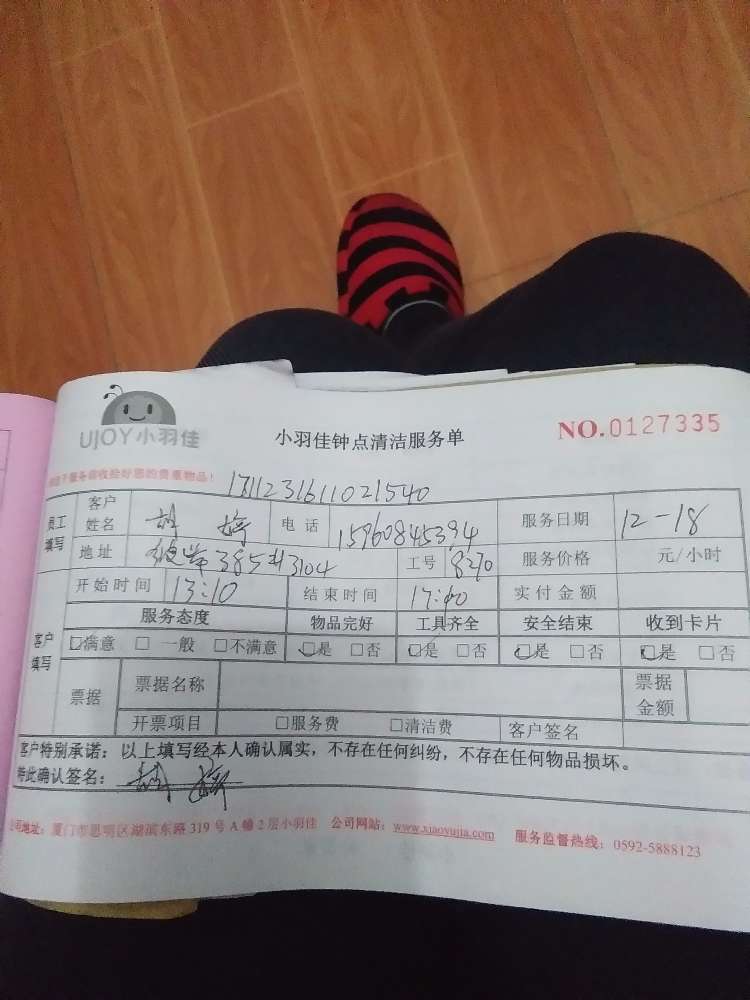 UJOY小羽佳
小羽佳钟点清洁服务单
NO.0127335
服务前收检好您的贵重物品！
1711231611021540
员工填写
客户姓名
电话 15960845394
服务日期 12-18
地址 385#3104
工号 8270
服务价格 元/小时
开始时间 13:10
结束时间
实付金额
客户填写
服务态度 物品完好 工具齐全 安全结束 收到卡片
☑满意 □一般 □不满意 ☑是 □否 ☑是 □否 ☑是 □否 ☑是 □否
票据 票据名称 票据金额
开票项目 □服务费 □清洁费 客户签名
客户特别承诺：以上填写经本人确认属实，不存在任何纠纷，不存在任何物品损坏。
特此确认签名：
公司地址：厦门市思明区湖滨东路319号A幢2层小羽佳 公司网站：www.xiaoyujia.com 服务监督热线：0592-5888123